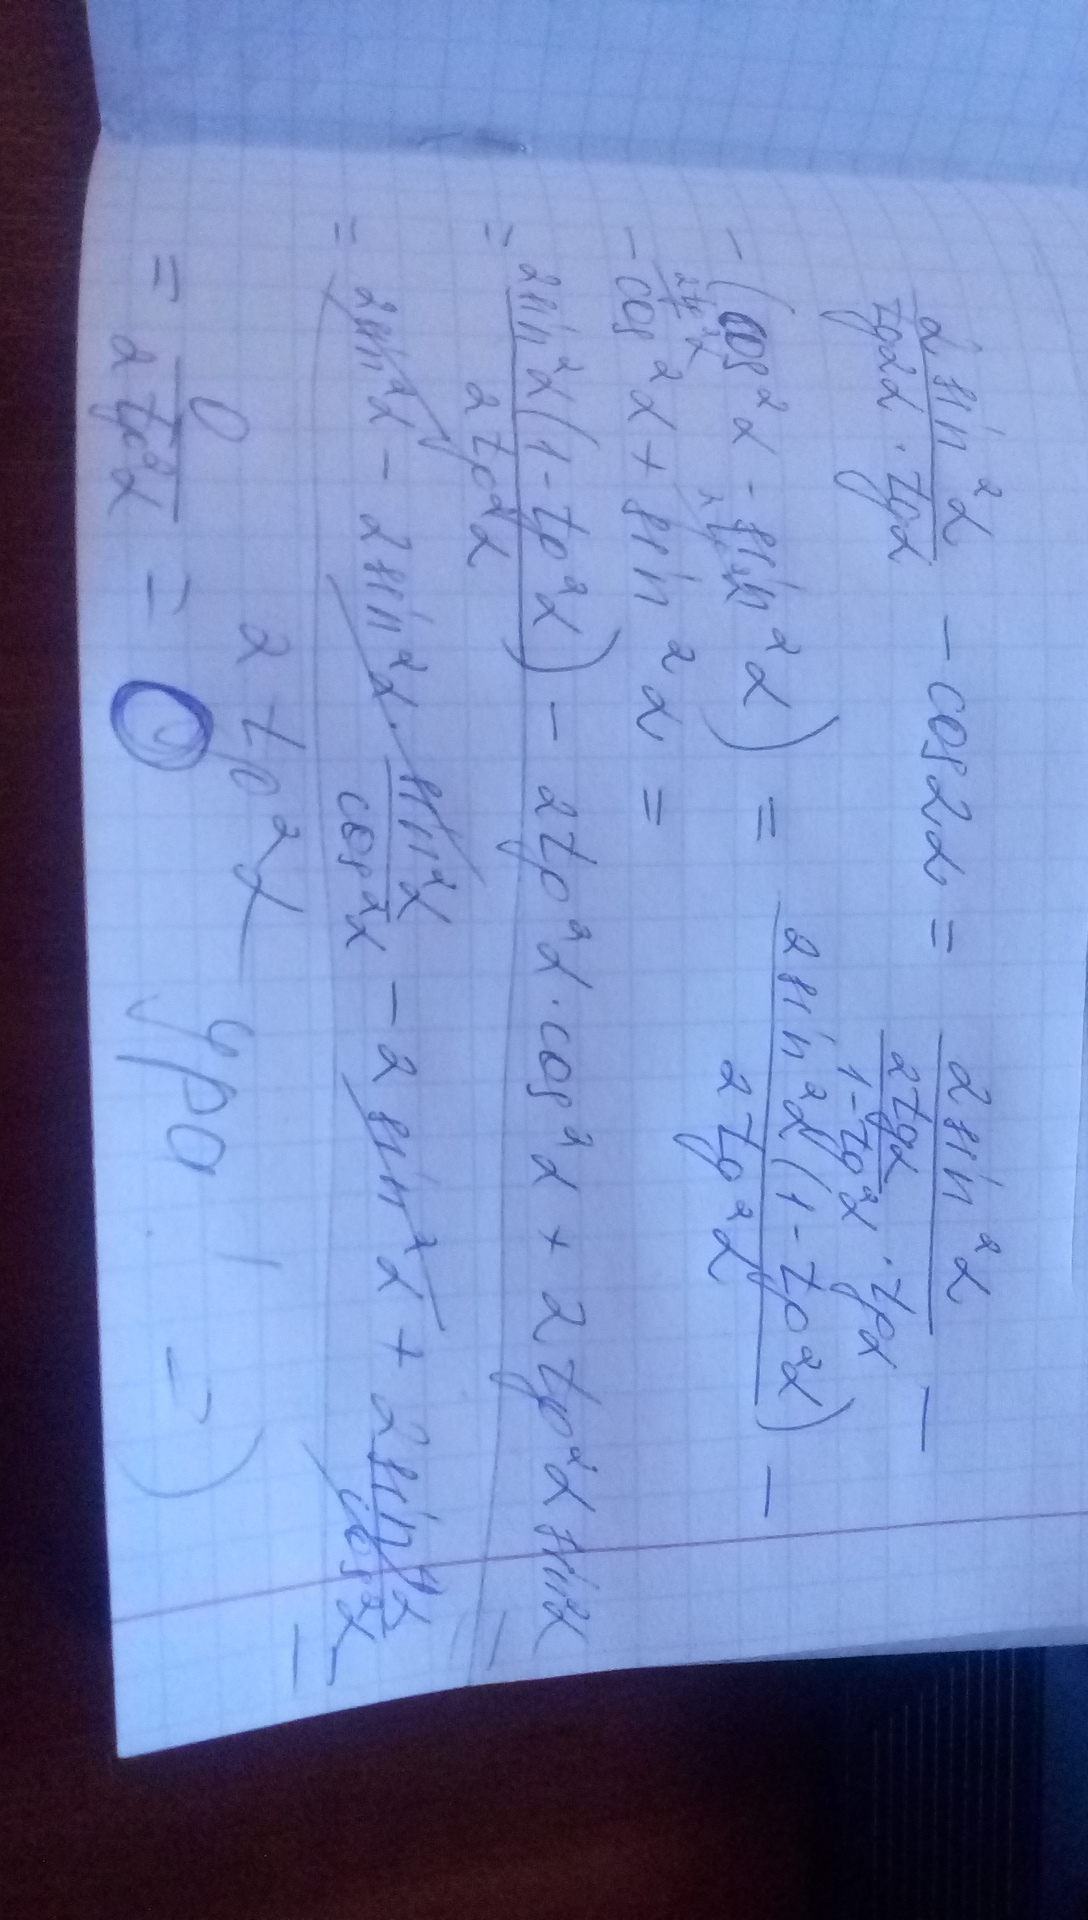 2sin²α / tg2α · tgα − cos2α = 2sin²α / 2tgα / 1−tg²α · tgα −
− (cos²α − sin²α) = 2sin²α(1−tg²α) / 2tg²α −
− cos²α + sin²α =
= 2sin²α(1−tg²α) − 2tg²α · cos²α + 2tg²α sin²α / 2tg²α =
= 2sin²α − 2sin²α · sin²α / cos²α − 2sin²α + 2sin⁴α / cos²α / 2tg²α =
= 0 / 2tg²α = 0 ура! =)